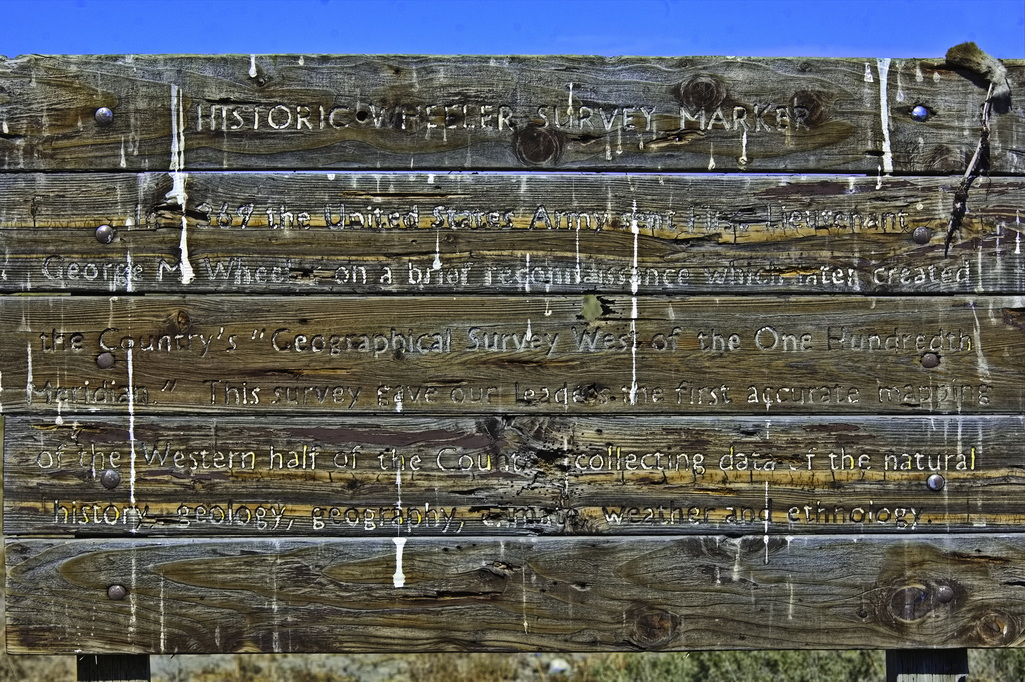 HISTORIC WHEELER SURVEY MARKER
In 1869 the United States Army sent First Lieutenant
George M. Wheeler on a brief reconnaissance which later created
the Country's "Geographical Survey West of the One Hundredth
Meridian." This survey gave our leaders the first accurate mapping
of the Western half of the Country collecting data of the natural
history, geology, geography, weather and ethnology.